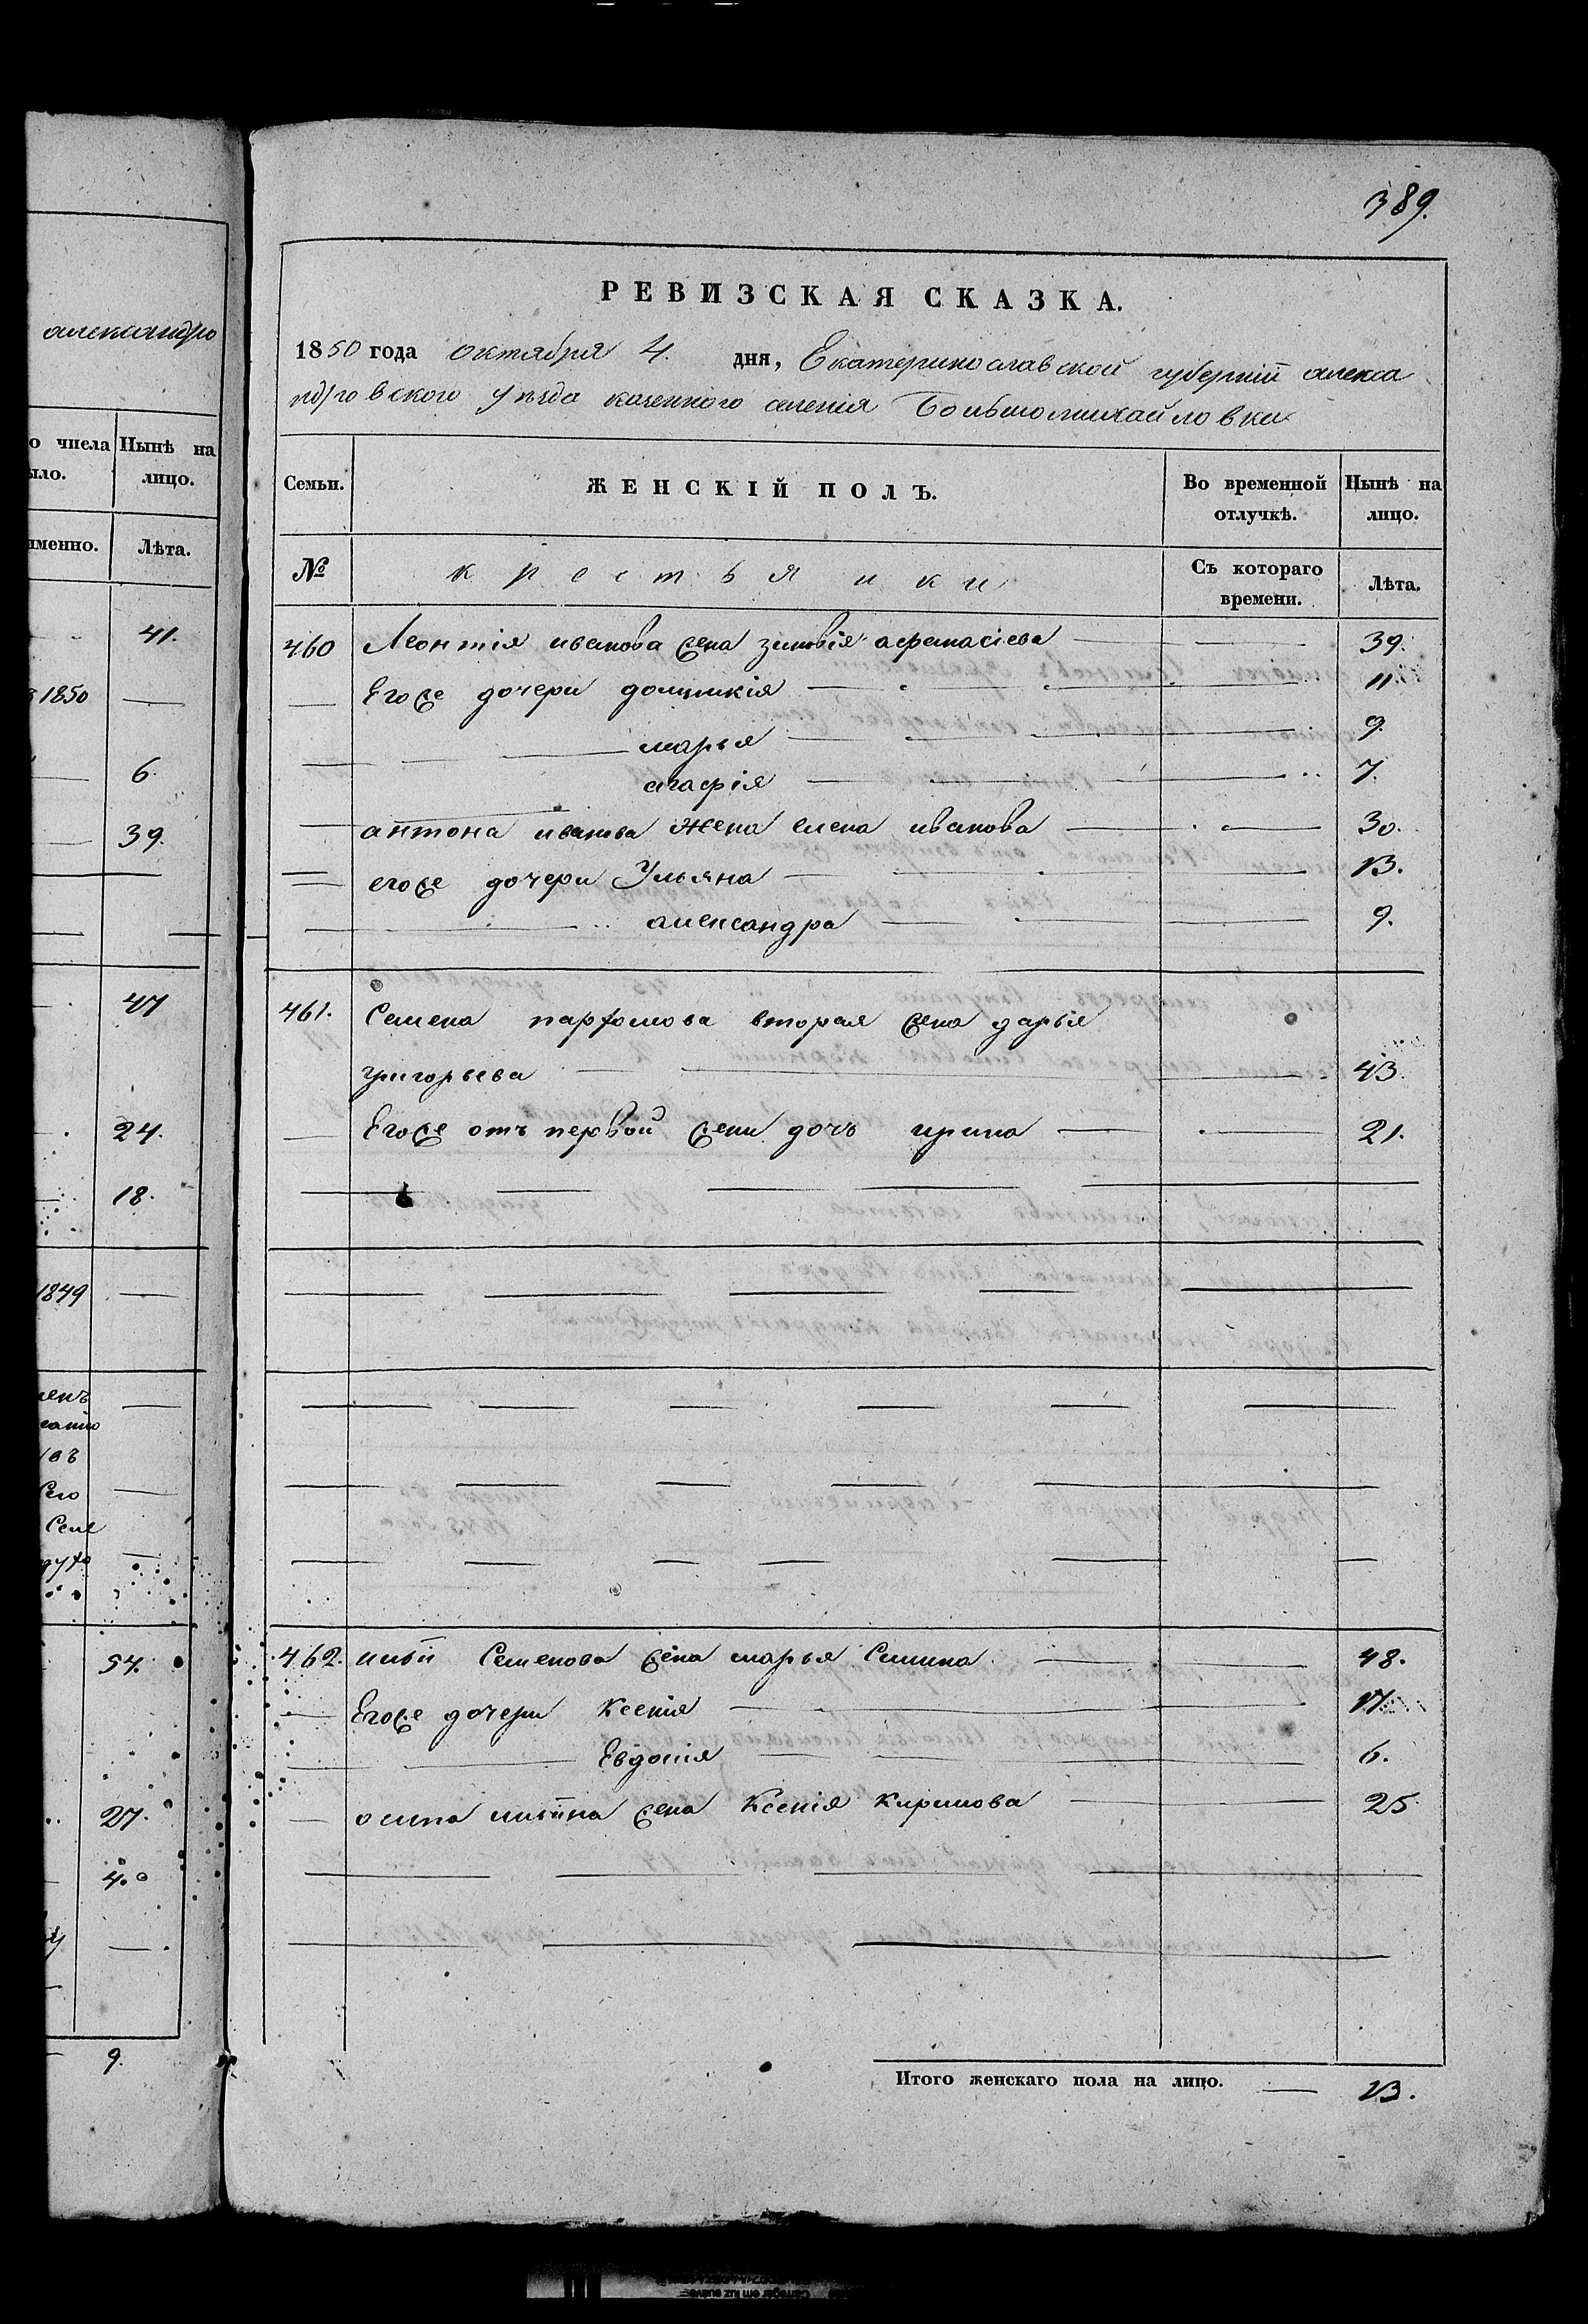 александро
о числа Нынѣ на
ыло. лицо.
именно. Лѣта.
41.
1850
6.
39.
47
24.
18.
1849
54.
27.
4.
9.
389.
РЕВИЗСКАЯ СКАЗКА.
1850 года октября 4. дня, Екатеринославской губерніи алекса
ндровского уѣзда казенного селенія Большомихайловки
Семьи. ЖЕНСКІЙ ПОЛЪ. Во временной отлучкѣ. Нынѣ на лицо.
№ крестьянки Съ котораго времени. Лѣта.
460 Леонтія иванова жена зиновія афанасіева 39.
Егоже дочери домникія 11.
марья 9.
агафія 7.
антона иванова жена елена иванова 30.
егоже дочери Ульяна 13.
александра 9.
461. Семена парфомова вторая жена дарья
григорьева 43.
Егоже отъ первой жени дочь ирина 21.
462. ильи Семенова жена марья Семина 48.
Егоже дочери Ксенія 17.
Евдокія 6.
осипа ильина жена Ксенія Кирилова 25.
Итого женскаго пола на лицо. 13.